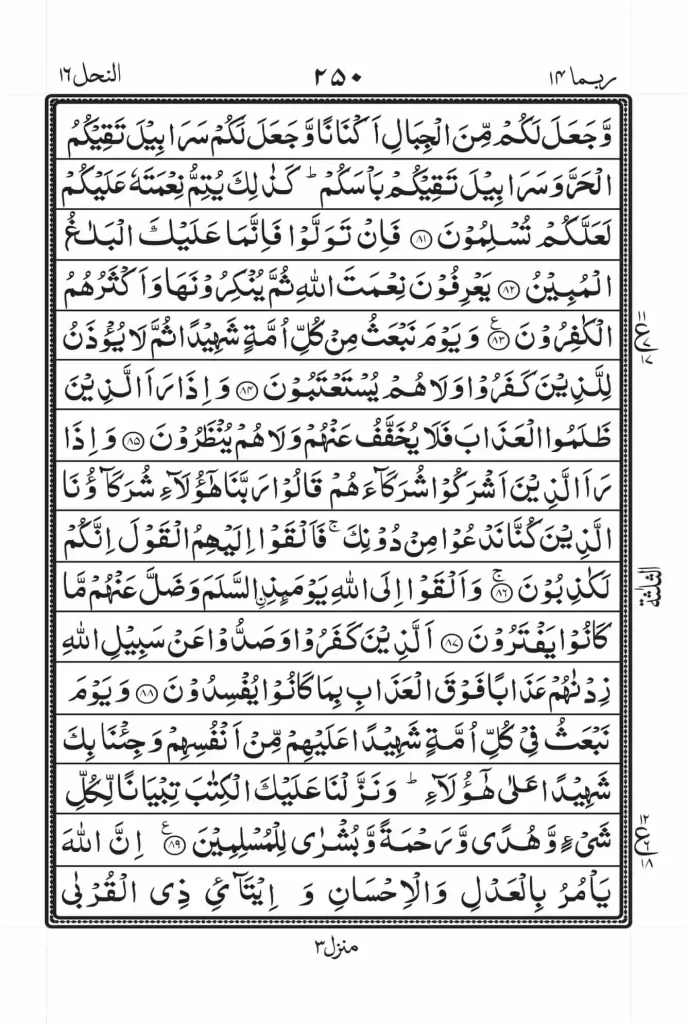 ربما ١٤
٢٥٠
النحل ١٦
وَّجَعَلَ لَكُمْ مِّنَ الْجِبَالِ اَكْنَانًا وَّجَعَلَ لَكُمْ سَرَابِيْلَ تَقِيْكُمُ
الْحَرَّ وَسَرَابِيْلَ تَقِيْكُمْ بَاْسَكُمْ ؕ كَذٰلِكَ يُتِمُّ نِعْمَتَهٗ عَلَيْكُمْ
لَعَلَّكُمْ تُسْلِمُوْنَ ﴿۸۱﴾ فَاِنْ تَوَلَّوْا فَاِنَّمَا عَلَيْكَ الْبَلٰغُ
الْمُبِيْنُ ﴿۸۲﴾ يَعْرِفُوْنَ نِعْمَتَ اللّٰهِ ثُمَّ يُنْكِرُوْنَهَا وَاَكْثَرُهُمُ
الْكٰفِرُوْنَ ﴿۸۳﴾ ع وَيَوْمَ نَبْعَثُ مِنْ كُلِّ اُمَّةٍ شَهِيْدًا ثُمَّ لَا يُؤْذَنُ
۱۱
ع۷
۱۷
لِلَّذِيْنَ كَفَرُوْا وَلَا هُمْ يُسْتَعْتَبُوْنَ ﴿۸۴﴾ وَاِذَا رَاَ الَّذِيْنَ
ظَلَمُوا الْعَذَابَ فَلَا يُخَفَّفُ عَنْهُمْ وَلَا هُمْ يُنْظَرُوْنَ ﴿۸۵﴾ وَاِذَا
رَاَ الَّذِيْنَ اَشْرَكُوْا شُرَكَآءَهُمْ قَالُوْا رَبَّنَا هٰٓؤُلَآءِ شُرَكَآؤُنَا
الَّذِيْنَ كُنَّا نَدْعُوْا مِنْ دُوْنِكَ ۚ فَاَلْقَوْا اِلَيْهِمُ الْقَوْلَ اِنَّكُمْ
لَكٰذِبُوْنَ ﴿۸۶﴾ ۚ وَاَلْقَوْا اِلَى اللّٰهِ يَوْمَئِذِ ِۨالسَّلَمَ وَضَلَّ عَنْهُمْ مَّا
الثلثة
كَانُوْا يَفْتَرُوْنَ ﴿۸۷﴾ اَلَّذِيْنَ كَفَرُوْا وَصَدُّوْا عَنْ سَبِيْلِ اللّٰهِ
زِدْنٰهُمْ عَذَابًا فَوْقَ الْعَذَابِ بِمَا كَانُوْا يُفْسِدُوْنَ ﴿۸۸﴾ وَيَوْمَ
نَبْعَثُ فِيْ كُلِّ اُمَّةٍ شَهِيْدًا عَلَيْهِمْ مِّنْ اَنْفُسِهِمْ وَجِئْنَا بِكَ
شَهِيْدًا عَلٰى هٰٓؤُلَآءِ ؕ وَنَزَّلْنَا عَلَيْكَ الْكِتٰبَ تِبْيَانًا لِّكُلِّ
شَيْءٍ وَّهُدًى وَّرَحْمَةً وَّبُشْرٰى لِلْمُسْلِمِيْنَ ﴿۸۹﴾ ع اِنَّ اللّٰهَ
۱۲
ع۶
۱۸
يَاْمُرُ بِالْعَدْلِ وَالْاِحْسَانِ وَ اِيْتَآئِ ذِى الْقُرْبٰى
منزل ۳